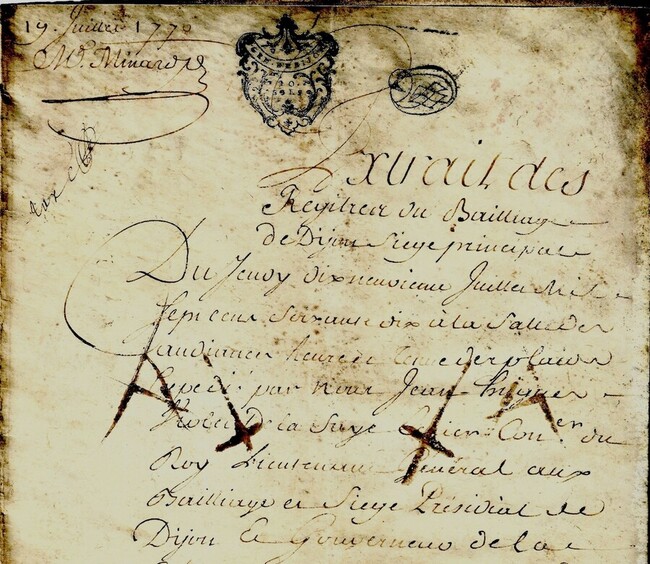 19. Juillet 1770
Mr. Minard
Extrait des
Regitres du Bailliage
de Dijon Siege principal
Du Jeudy dix neuvieme Juillet Mil
Sept cens soixante dix à la Salle des
audiances heure de Cour des plaids
par nous Jean
de la Con.er du
Roy Lieutenant General aux
Bailliage et Siege Présidial de
Dijon Gouverneur de la